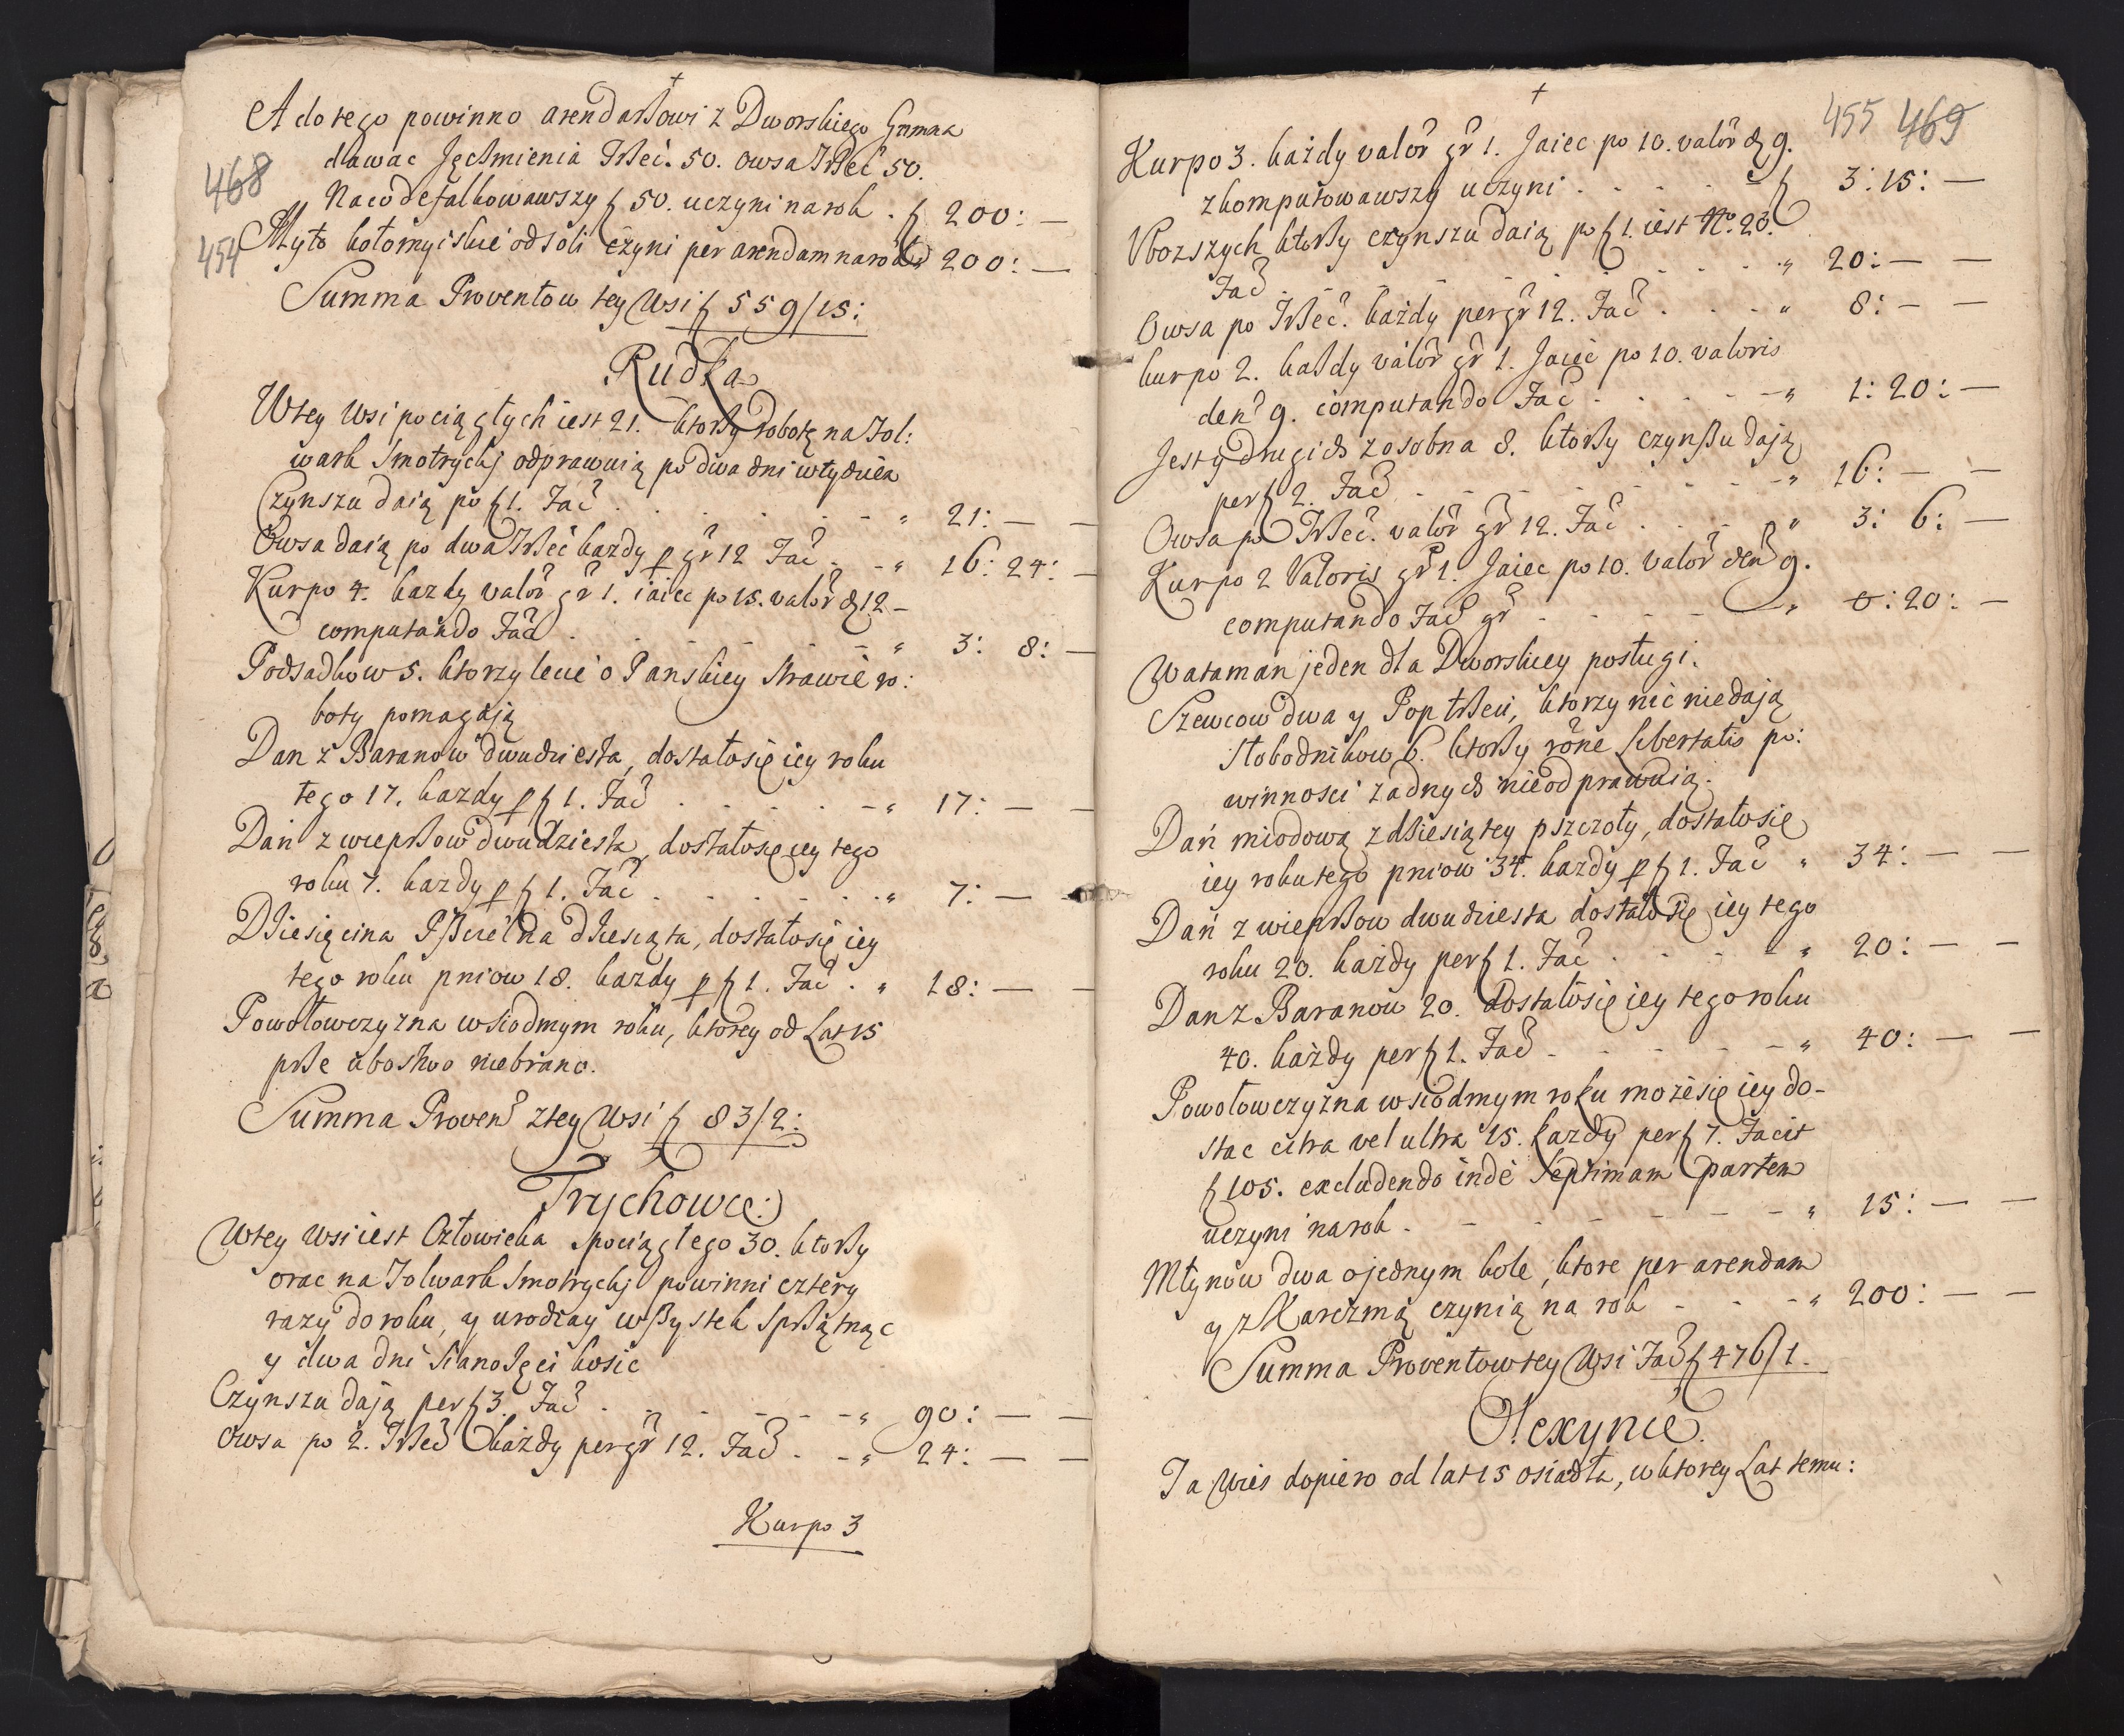 +
A do tego powinno arendarzowi z Dworskiego Gumna
dawac Jęczmienia Trzeć. 50. owsa Trzeć 50.
468
Na co defalkowawszy f 50. uczyni na rok . f 200: —
454
Myto kołomyiskie od soli czyni per arendam na rok " 200: —
Summa Proventow tey Wsi f 559/15:
Rudka
W tey Wsi pociągłych iest 21. ktorzy robotę na Fol:
wark Smotrycki odprawuią po dwa dni w tydniea
Czynszu daią po f 1. Fac̃ . . . . . " 21: — —
Owsa daią po dwa Trzeć kazdy p gr̃ 12 Fac̃ . - " 16: 24: —
Kur po 4. kazdy valor̃ gr̃ 1. iaiec po 15. valor̃ ꝺ 12 -
computando Fac̃ . . . . . " 3: 8: —
Podsadkow 5. ktorzy lecie o Panskiey strawie ro:
boty pomagaią
Dan z Baranow dwudziesta, dostało się iey roku
tego 17. kazdy p f 1. Fac̃ . . . . . " 17: — —
Dań z wieprzow dwudziesta, dostało się iey tego
roku 7. kazdy p f 1. Fac̃ . . . . . " 7: — —
Dziesięcina Pszczelna dziesiąta, dostało się iey
tego roku pniow 18. kazdy p f 1. Fac̃ . " 18: — —
Powołowczyzna w siodmym roku, ktorey od Lat 15
prze ubostwo nie brano.
Summa Proven̄ z tey Wsi f 83/2:
Trychowce:
W tey Wsi iest Człowieka pociągłego 30. ktorzy
orac na Folwark Smotrycki powinni cztery
razy do roku, y urodzay wszystek sprzątnąc
y dwa dni sianożęci kosic
Czynszu dają per f 3. Fac̃ . . . . . " 90: — —
Owsa po 2. Trzec̃ każdy per gr̃ 12. Fac̃ . - " 24: — —
Kur po 3
+
455 469
Kur po 3. każdy valor̃ gr̃ 1. Jaiec po 10. valor̃ ꝺ 9.
zkomputowawszy uczyni . . . . . f 3: 15: —
Ubozszych ktorzy czynszu daią po f 1. iest No. 20.
Fac̃ . . . . . " 20: — —
Owsa po Trzeć. każdy per gr̃ 12. Fac̃ . . . " 8: — —
kur po 2. każdy valor̃ gr̃ 1. Jaiec po 10. valoris
den̄ 9. computando Fac̃ . . . . . " 1: 20: —
Jest y drugich z osobna 8. ktorzy czynszu dają
per f 2. Fac̃ . . . . . " 16: — —
Owsa po Trzeć. valor̃ gr̃ 12. Fac̃ . . . " 3: 6: —
Kur po 2 Valoris gr̃ 1. Jaiec po 10. valor̃ den̄ 9.
computando Fac̃ gr̃ . . . . . " 0: 20: —
Wataman jeden dla Dworskiey posługi.
Szewcow dwa y Pop trzeci, ktorzy nic nie dają
Słobodnikow 6. ktorzy rõne libertatis po:
winnosci zadnych nie odprawuią.
Dań miodową z dziesiątey pszczoły, dostało się
iey roku tego pniow 34. kazdy p f 1. Fac̃ " 34: — —
Dań z wieprzow dwudziesta dostało się iey tego
roku 20. każdy per f 1. Fac̃ . . . . " 20: — —
Dan z Baranow 20. dostało się iey tego roku
40. każdy per f 1. Fac̃ . . . . . " 40: — —
Powołowczyzna w siodmym roku może się iey do-
stac citra vel ultra 15. każdy per f 7. Facit
f 105. excludendo inde septimam partem
uczyni na rok . . . . . " 15: — —
Młynow dwa o jednym kole, ktore per arendam
y z Karczmą czynią na rok . . . " 200: — —
Summa Proventow tey Wsi Fac̃ f 476/1.
Olexynie.
Ta wies dopiero od lat 15 osiadła, w ktorey Lat temu: